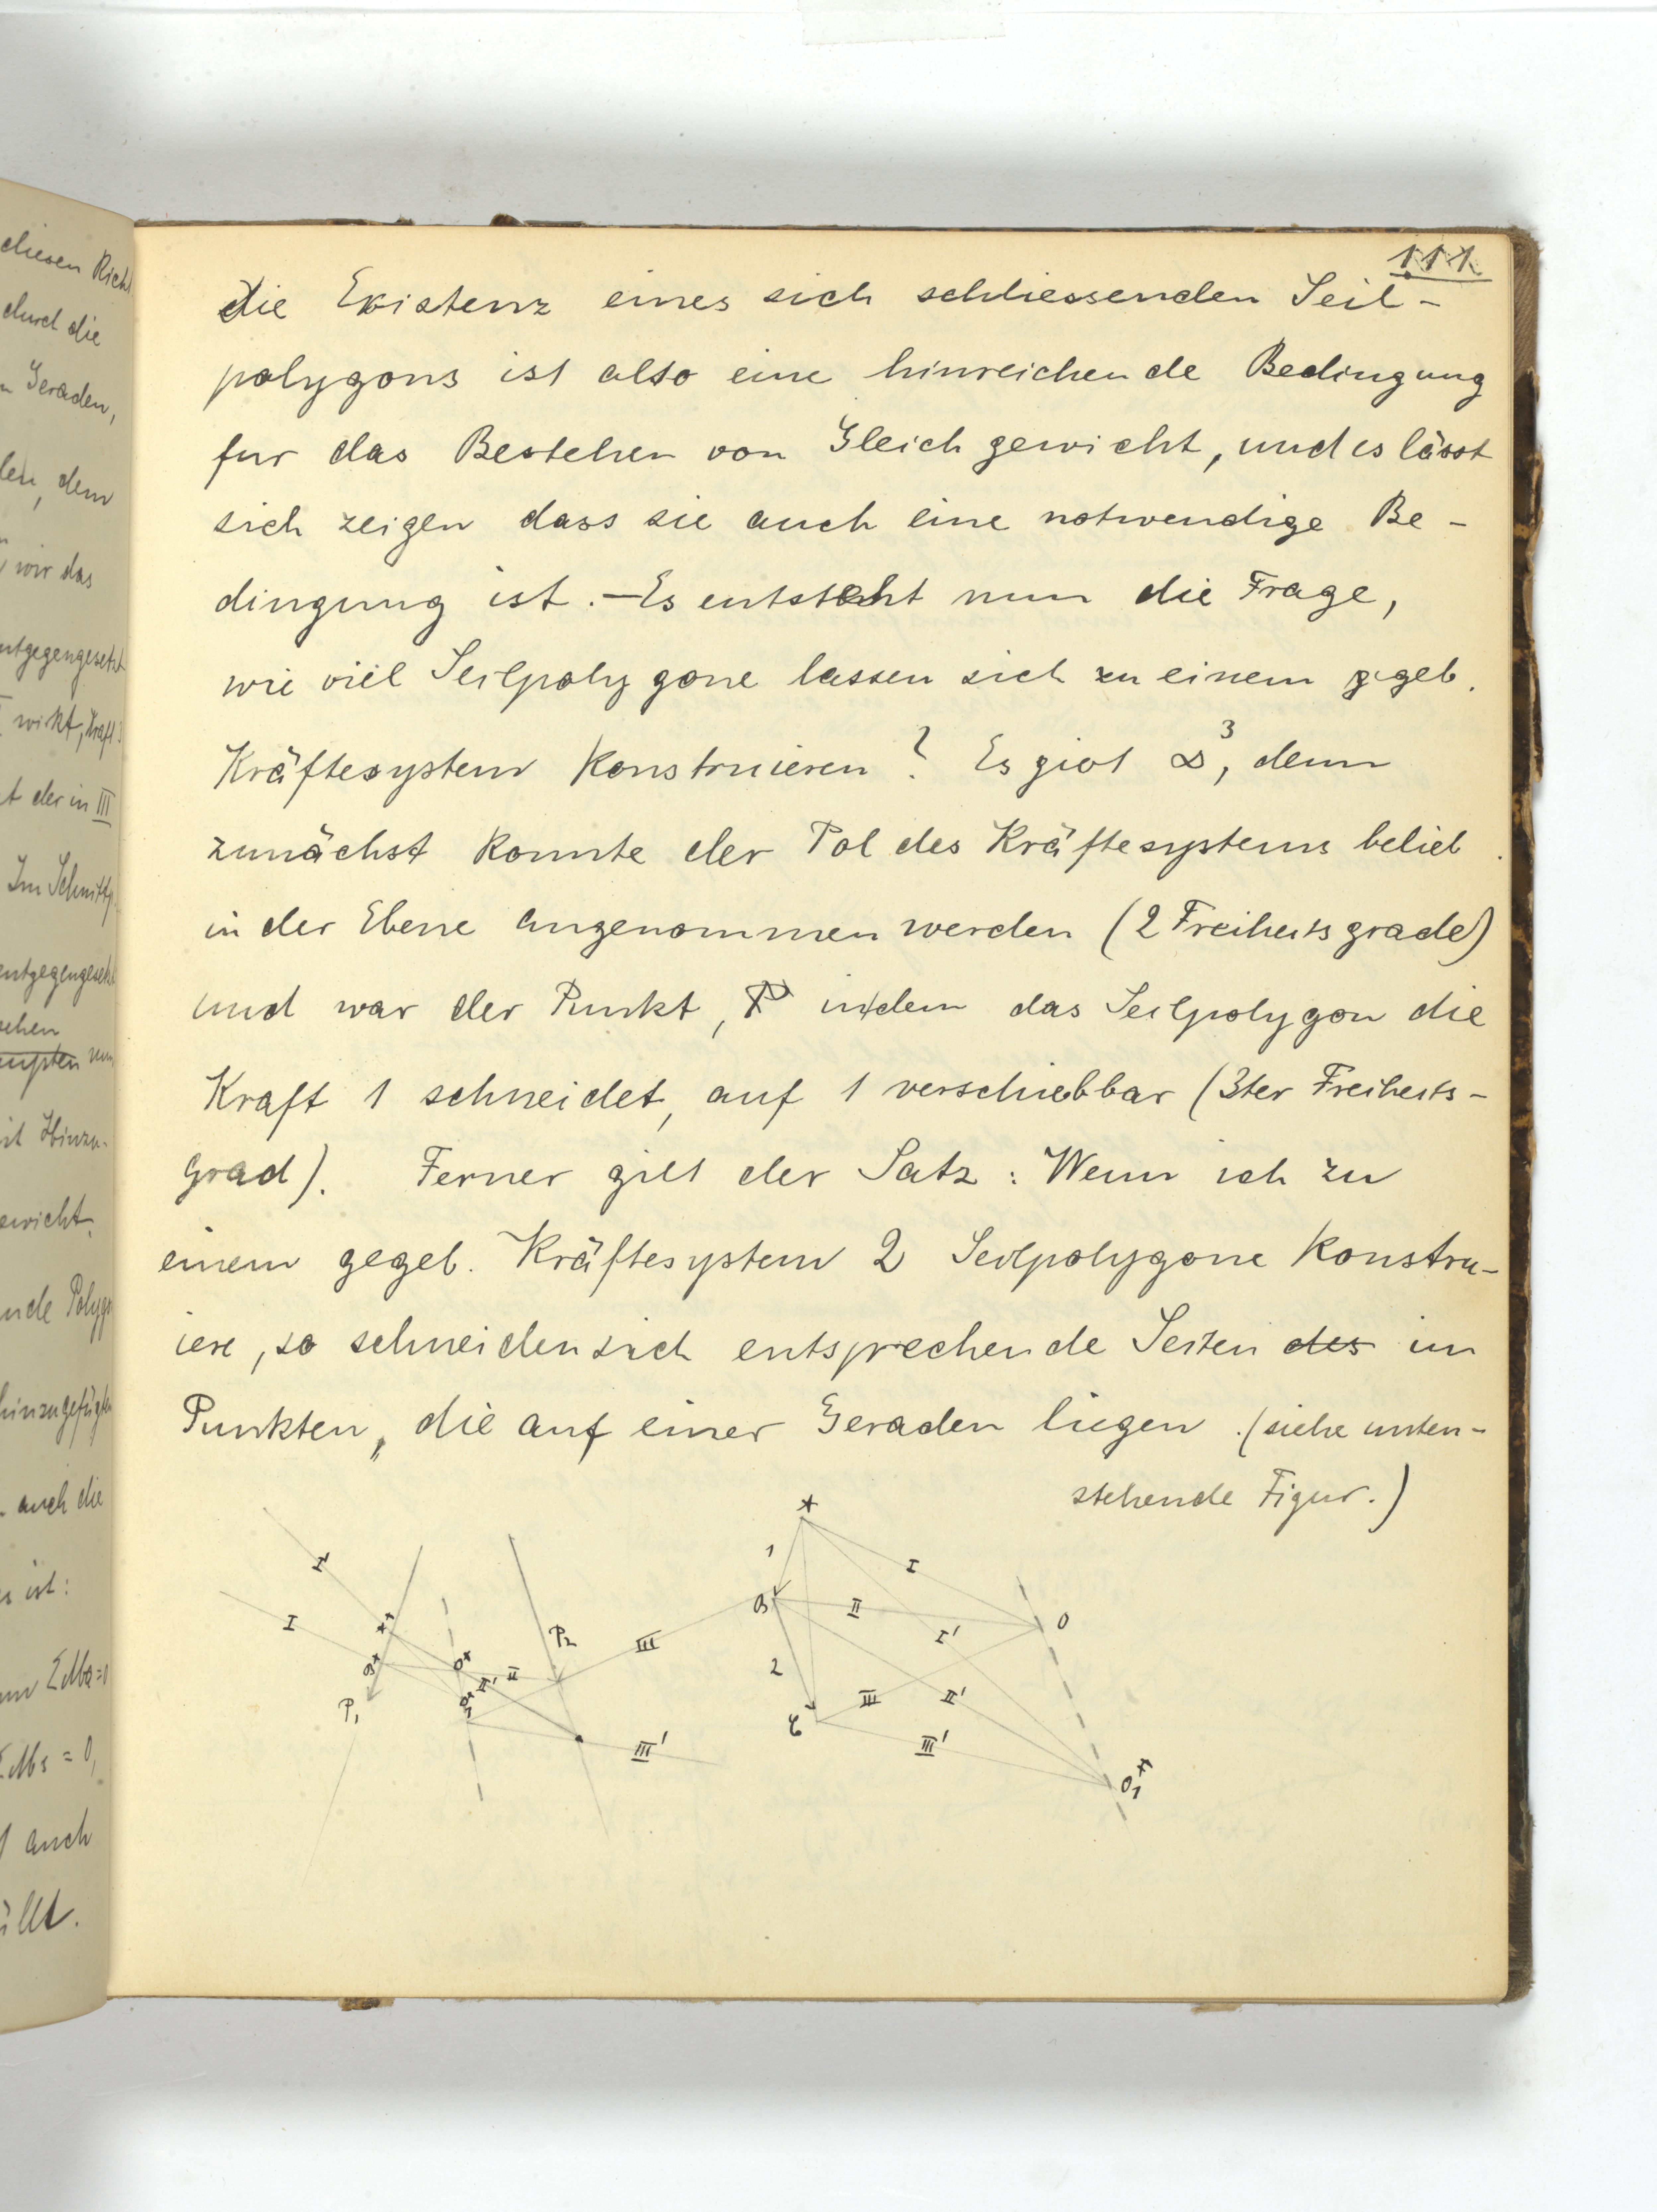 111
die Existenz eines sich schliessenden Seil-
polygons ist also eine hinreichende Bedingung
fur das Bestehen von Gleichgewicht, und es lässt
sich zeigen dass sie auch eine notwendige Be-
dingung ist. — Es entsteht nun die Frage,
wie viel Seilpolygone lassen sich zu einem geb.
Kräftesystem konstruieren? Es giebt ∞³, denn
zunächst konnte der Pol des Kräftesystems belieb.
in der Ebene angenommen werden (2 Freiheitsgrade)
und war der Punkt, in dem das Seilpolygon die
Kraft 1 schneidet, auf 1 verschiebbar (3ter Freiheits-
grad). Ferner gilt der Satz: Wenn ich zu
einem gegeb. Kräftesystem 2 Seilpolygone konstru-
iere, so schneiden sich entsprechende Seiten des in
Punkten, die auf einer Geraden liegen. (siehe unten-
stehende Figur.)
I'
I
P₁
II' II
P₂
III
III'
1
2
I
II
I'
III
II'
III'
O
diesen Rich
durch die
Geraden,
dem
wir das
entgegengesetzt
wirkt, Kraft
der in III
Im Schnittp
entgegengesetz
nun
Hinzu-
nde Polygo
hinzugefügte
auch die
ist:
auch